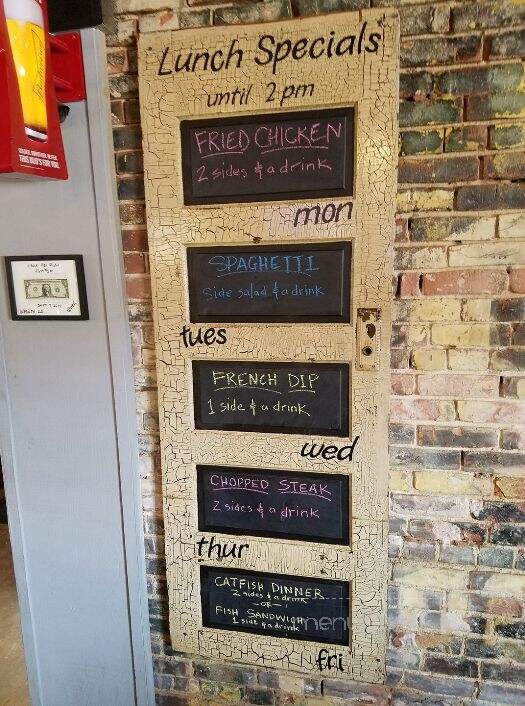 Lunch Specials
until 2 pm
FRIED CHICKEN
2 sides & a drink
mon
SPAGHETTI
Side salad & a drink
tues
FRENCH DIP
1 side & a drink
wed
CHOPPED STEAK
2 sides & a drink
thur
CATFISH DINNER
2 sides & a drink
-OR-
FISH SANDWICH
1 side & a drink
fri
THIS BUD'S FOR YOU